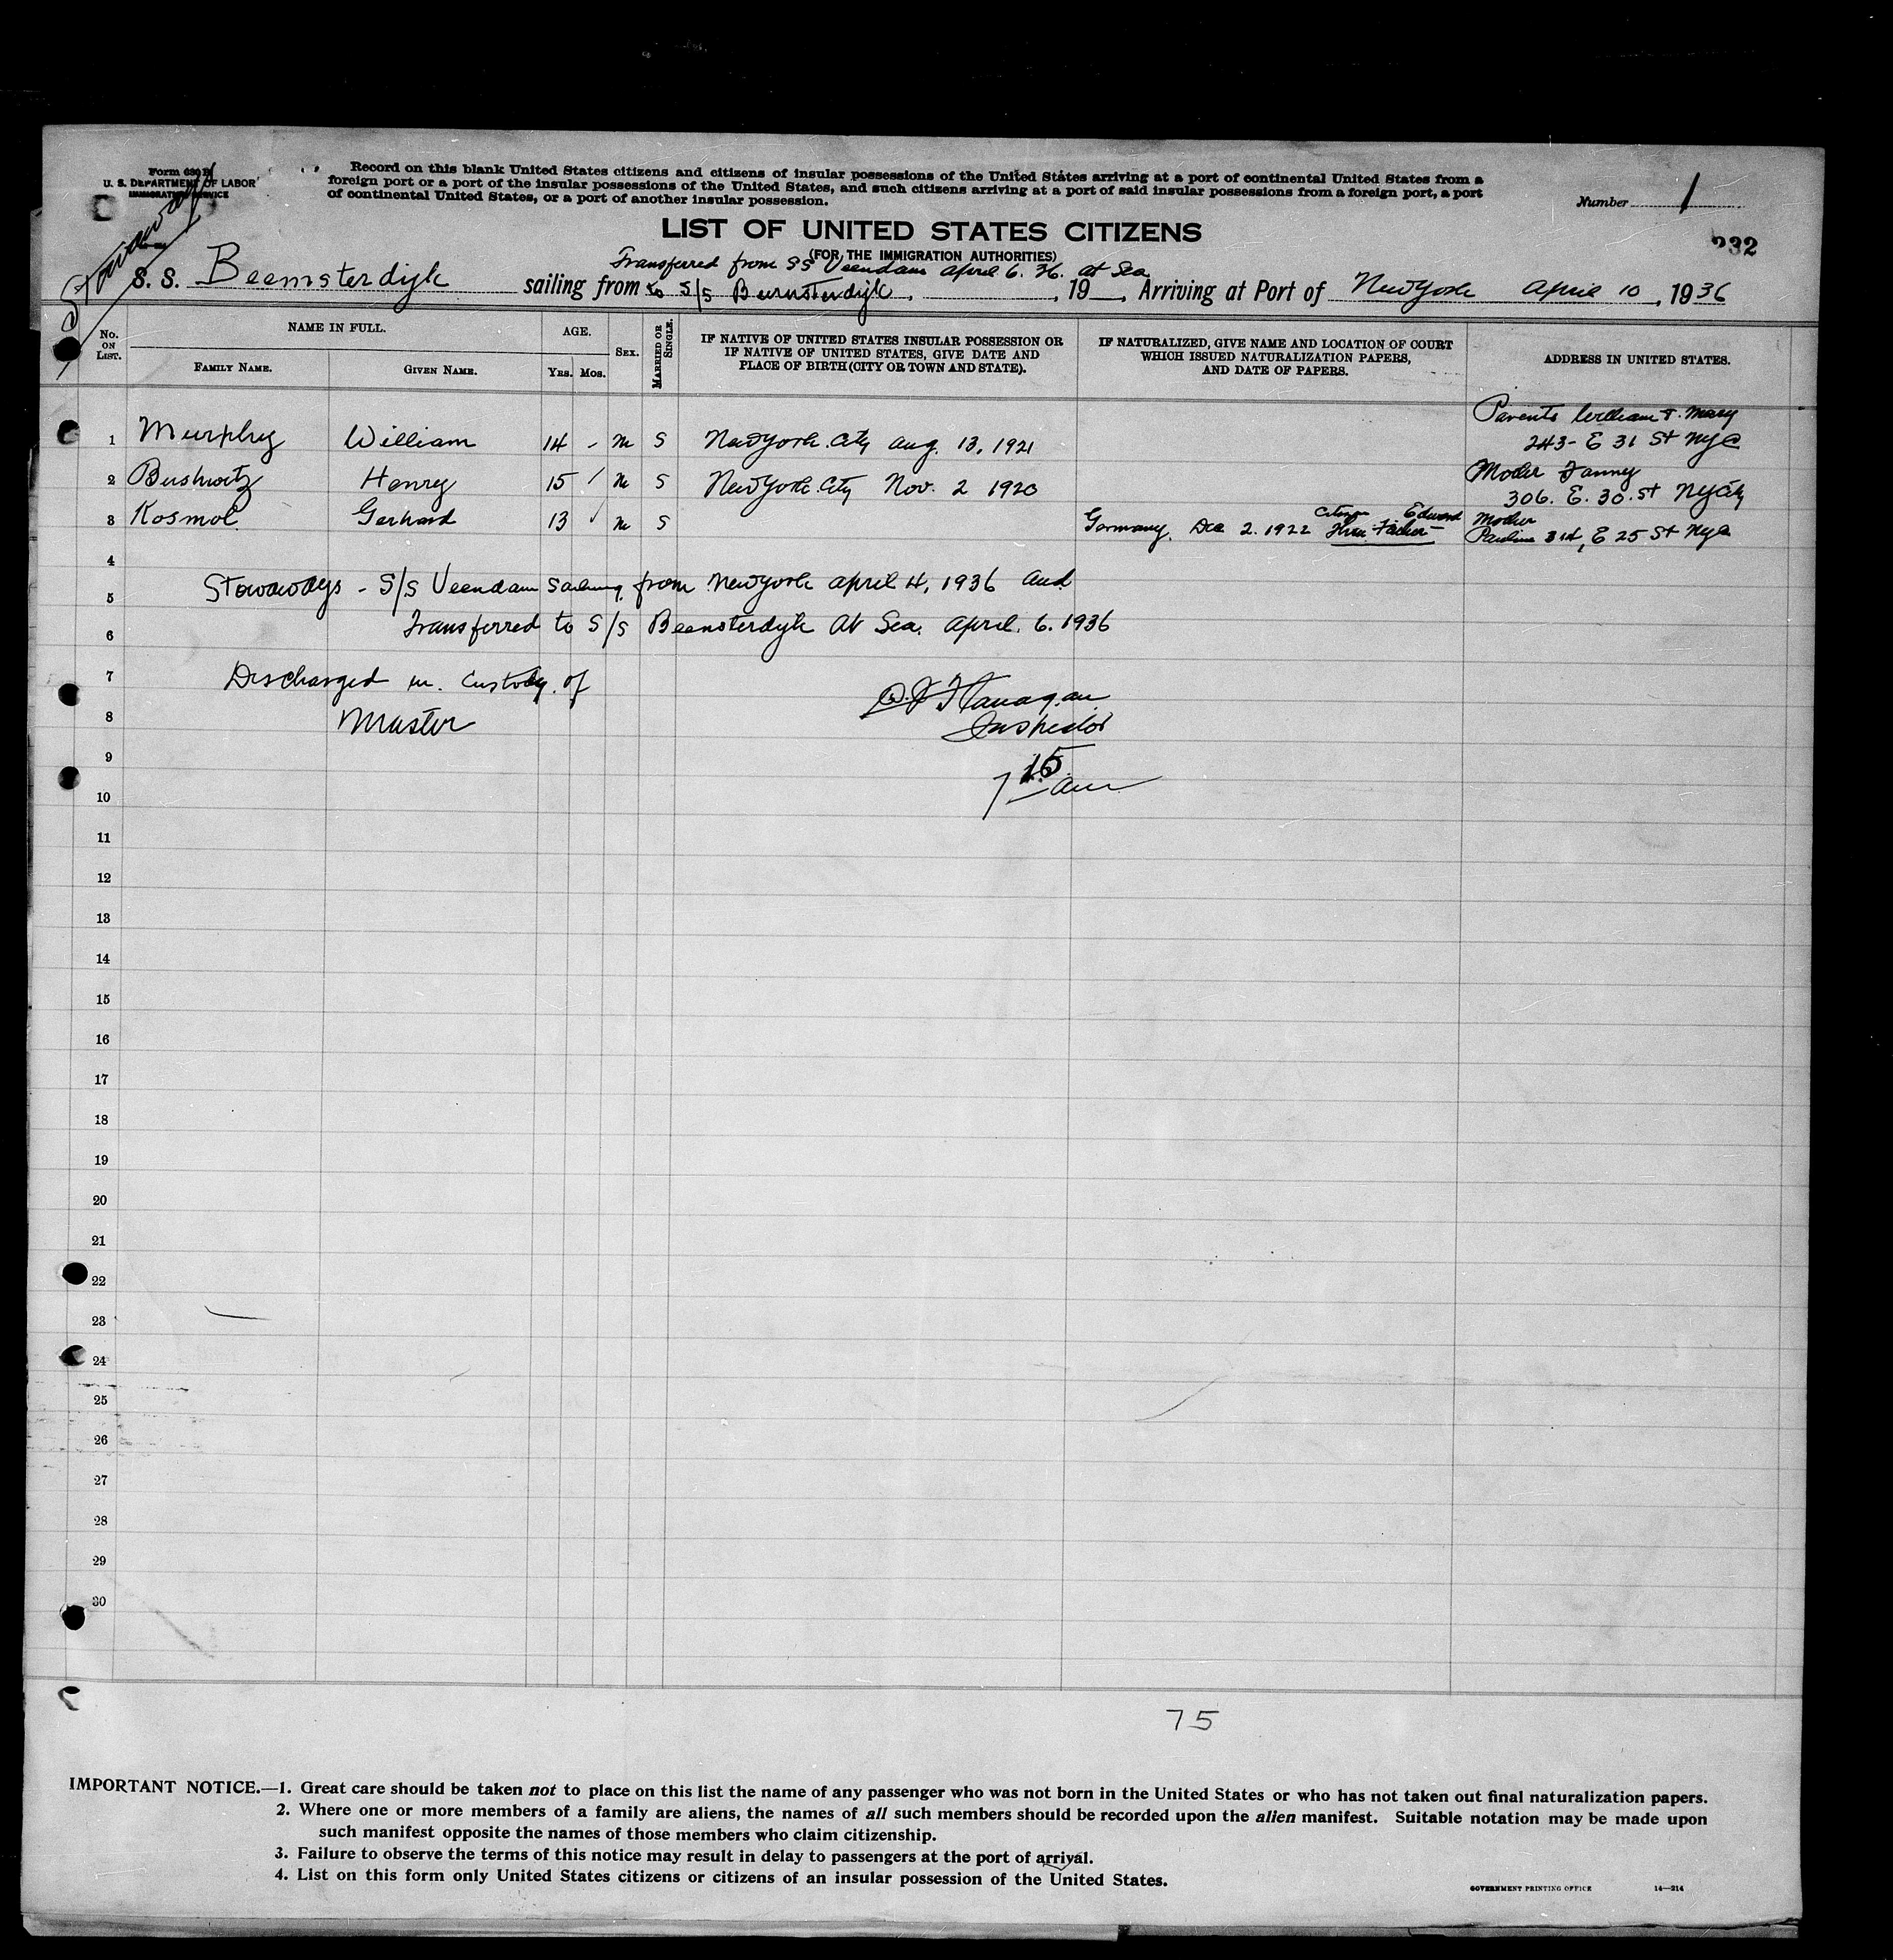 Form 630 B
U. S. DEPARTMENT OF LABOR
IMMIGRATION SERVICE
Stowaways
Record on this blank United States citizens and citizens of insular possessions of the United States arriving at a port of continental United States from a
foreign port or a port of the insular possessions of the United States, and such citizens arriving at a port of said insular possessions from a foreign port, a port
of continental United States, or a port of another insular possession.
Number 1
232
LIST OF UNITED STATES CITIZENS
(FOR THE IMMIGRATION AUTHORITIES)
Transferred from SS Veendam April 6. 36. at Sea
S. S. Beemsterdijk sailing from to S/S Beemsterdijk, , 19 , Arriving at Port of New York April 10, 1936
No. ON LIST. NAME IN FULL. AGE. SEX. MARRIED OR SINGLE. IF NATIVE OF UNITED STATES INSULAR POSSESSION OR IF NATIVE OF UNITED STATES, GIVE DATE AND PLACE OF BIRTH (CITY OR TOWN AND STATE). IF NATURALIZED, GIVE NAME AND LOCATION OF COURT WHICH ISSUED NATURALIZATION PAPERS, AND DATE OF PAPERS. ADDRESS IN UNITED STATES.
FAMILY NAME. GIVEN NAME. YRS. MOS.
Parents William & Mary
1 Murphy William 14 - M S New York City Aug. 13, 1921 243 - E 31 St NYC
Moder Fanny
2 Bushwitz Henry 15 / M S New York City Nov. 2 1920 306. E. 30. St NYCity
Citizen Edward Moder
3 Kosmol Gerhard 13 / M S Germany, Dec 2. 1922 Thru Father Pauline 314, E 25 St Nyc
4
Stowaways - S/S Veendam Sailing from New York April 4, 1936 and
5
Transferred to S/S Beemsterdyk At Sea. April. 6. 1936
6
7 Discharged in Custody of
8 Master
Flanagan
Inspector
9
7 15 am
10
11
12
13
14
15
16
17
18
19
20
21
22
23
24
25
26
27
28
29
30
75
IMPORTANT NOTICE.—1. Great care should be taken not to place on this list the name of any passenger who was not born in the United States or who has not taken out final naturalization papers.
2. Where one or more members of a family are aliens, the names of all such members should be recorded upon the alien manifest. Suitable notation may be made upon
such manifest opposite the names of those members who claim citizenship.
3. Failure to observe the terms of this notice may result in delay to passengers at the port of arrival.
4. List on this form only United States citizens or citizens of an insular possession of the United States.
GOVERNMENT PRINTING OFFICE 14—214